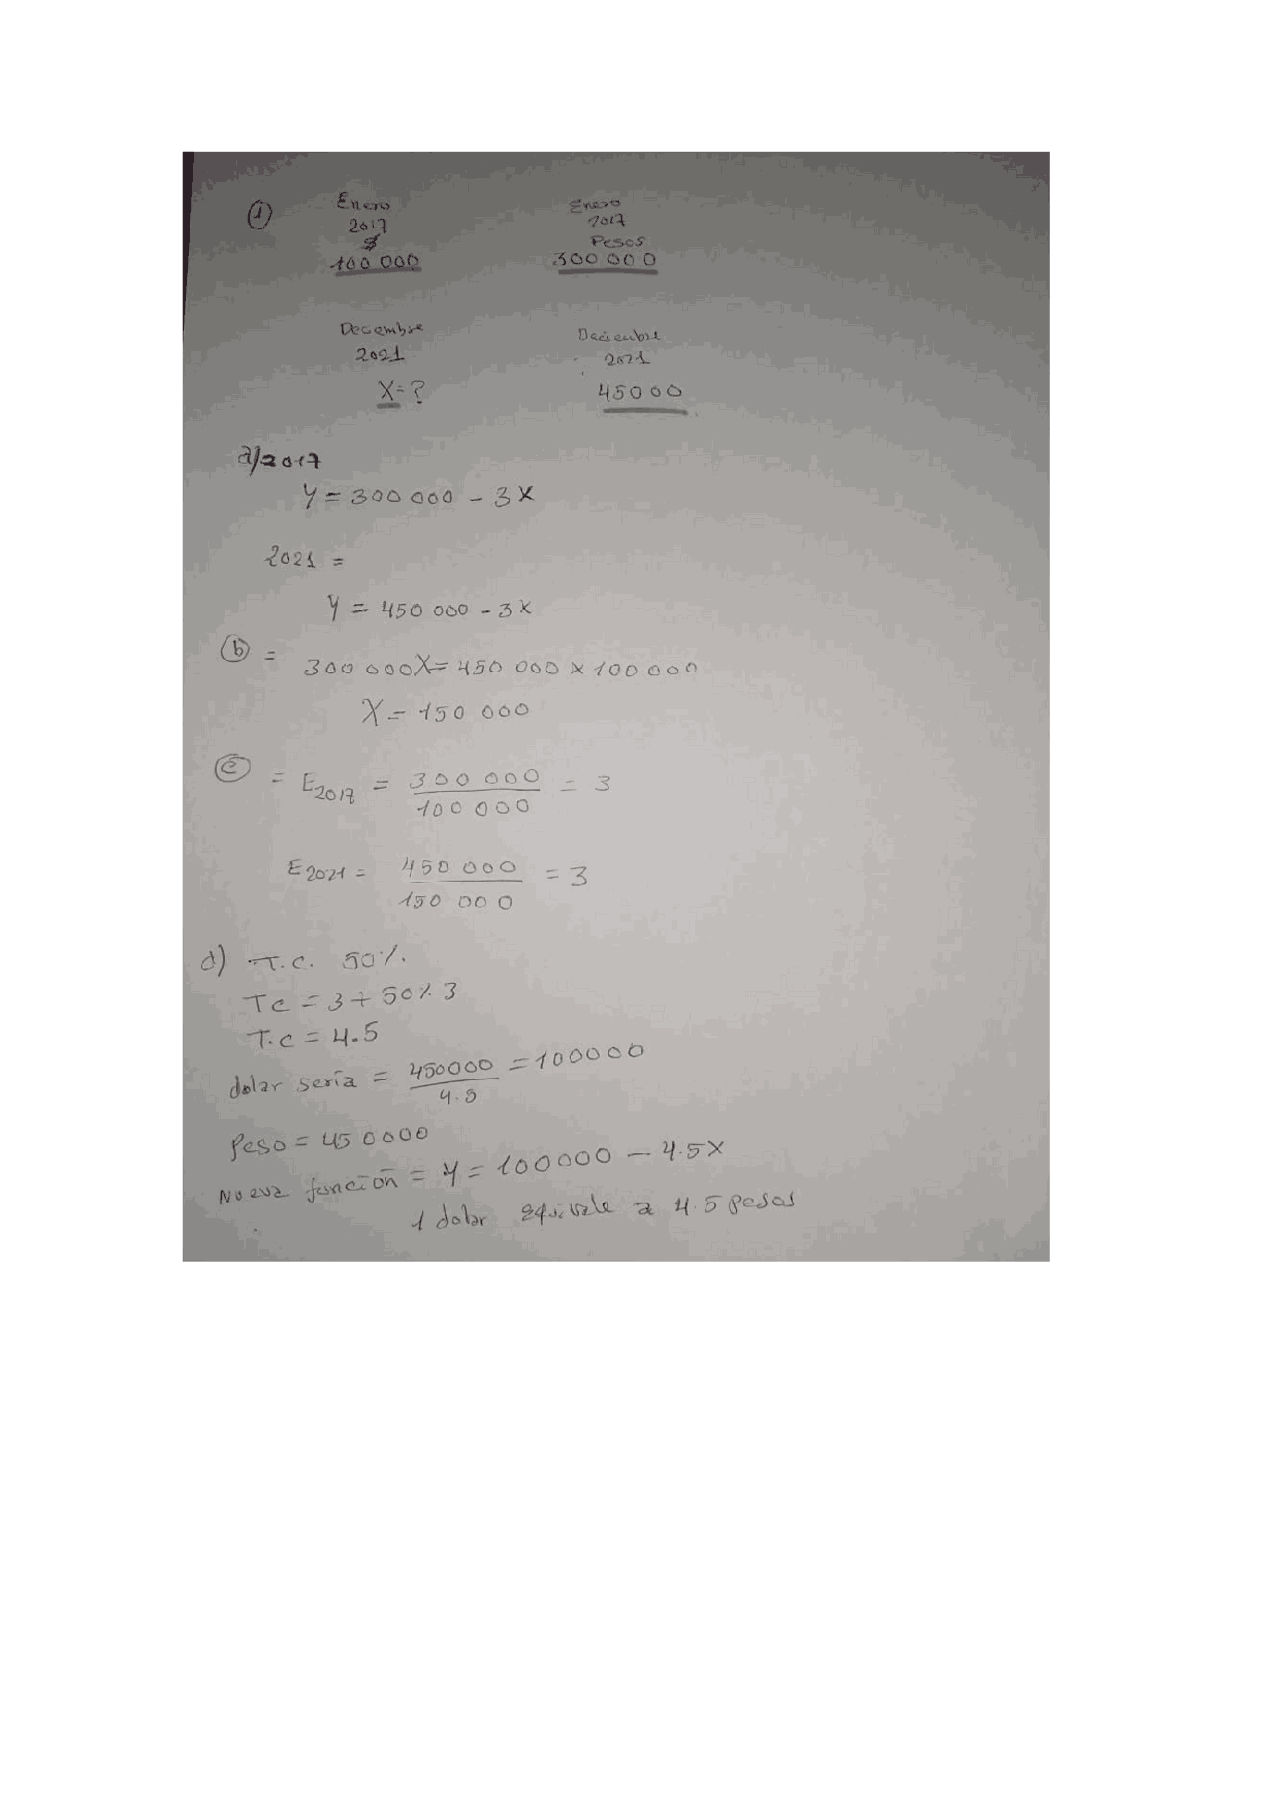 1 Enero Enero
2017 2017
$ Pesos
100 000 300 000
Decembre Deciembre
2021 2021
X=? 45000
a/2017
Y = 300 000 - 3X
2021 =
Y = 450 000 - 3X
b = 300 000X = 450 000 x 100 000
X = 150 000
c = E2017 = 300 000 / 100 000 = 3
E2021 = 450 000 / 150 000 = 3
d) T.C. 50%.
TC = 3 + 50% 3
T.C = 4.5
dolar sería = 450000 / 4.5 = 100000
Peso = 450000
Nueva función = Y = 100000 - 4.5X
1 dolar equivale a 4.5 pesos